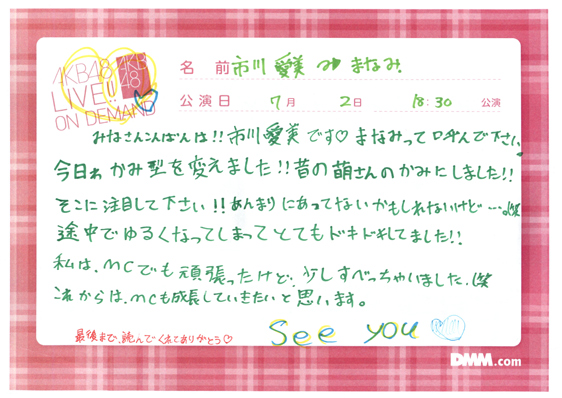 AKB48
LIVE!!
ON DEMAND
AKB
48
名 前 市川 愛美 まなみ
公演日 7月 2日 18:30 公演
みなさんこんばんは!!市川愛美です♡まなみって呼んで下さい。
今日わ かみ型を変えました!!昔の萌さんのかみにしました!!
そこに注目して下さい!!あんまりにあってないかもしれないけど…。笑
途中でゆるくなってしまってとてもドキドキしてました!!
私は、MCでも頑張ったけど、少しすべっちゃいました。笑
これからは、MCも成長していきたいと思います。
最後まで、読んでくれてありがとう♡
See you
DMM.com